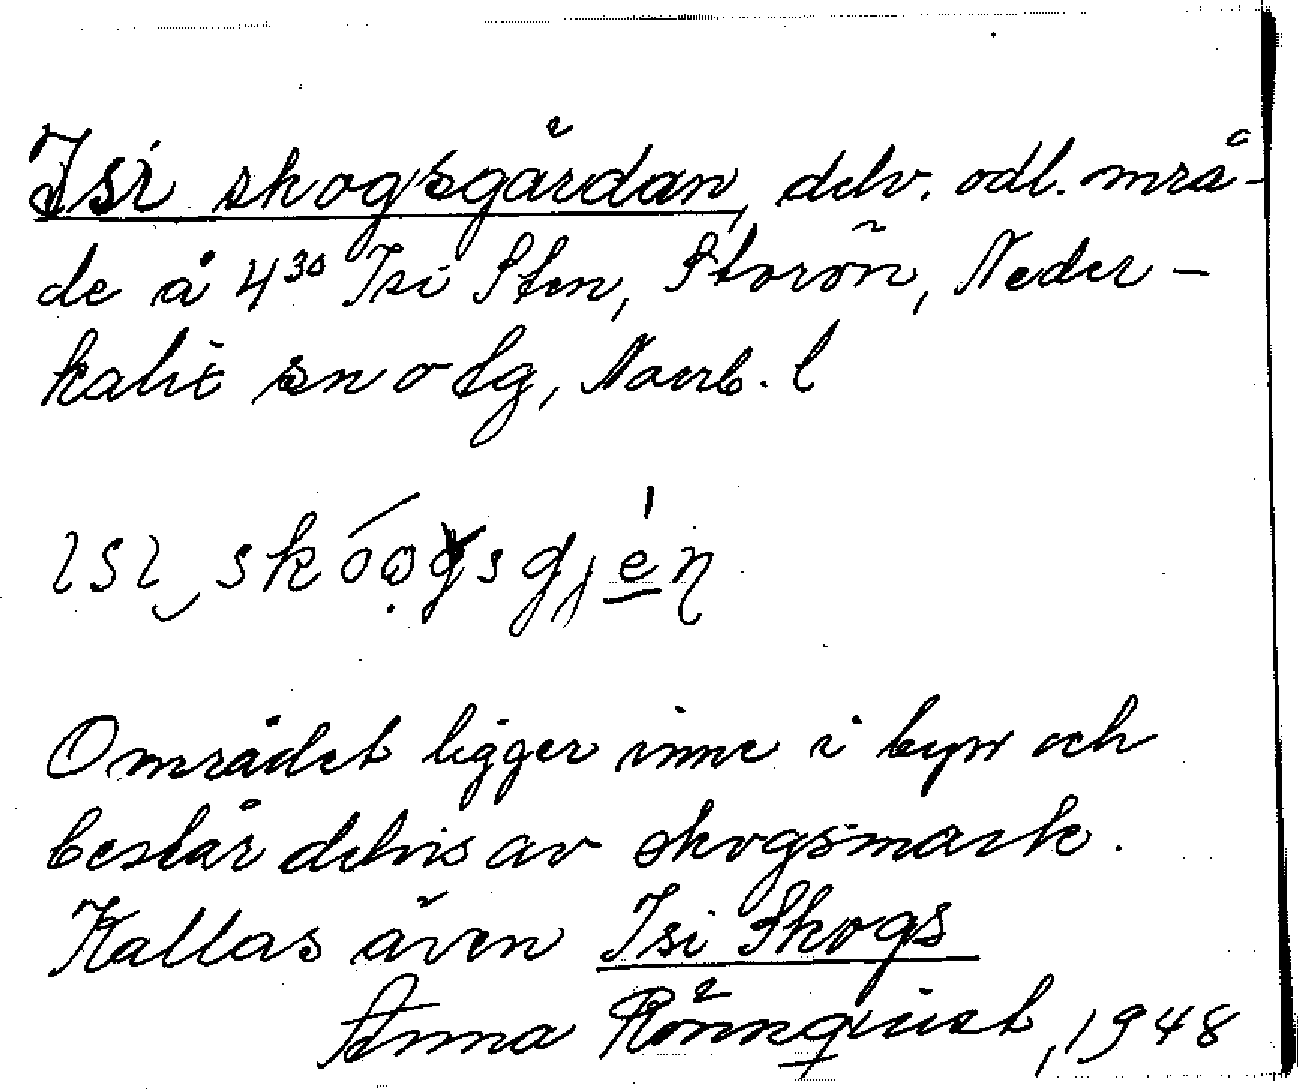 Isi skogsgärdan, delv. odl. områ-
de å 4³⁰ Isi Sten, Storön, Neder-
kalix sn o lg, Norrb. l
ɪsɪ skóọgsgjèn
Området ligger inne i byn och
består delvis av skogsmark.
Kallas även Isi Skogs
Anna Rönnqvist, 1948